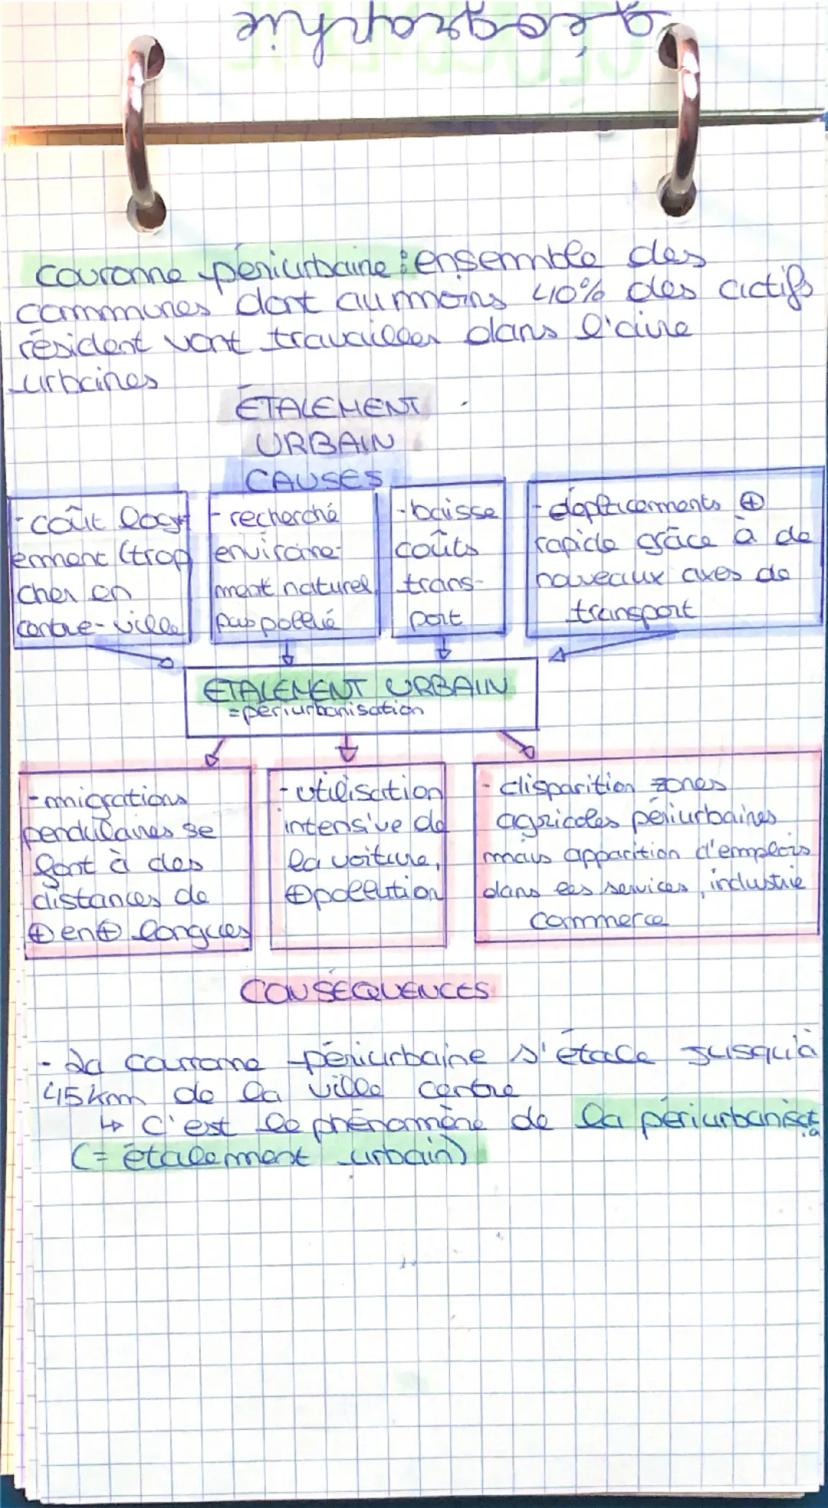 géographie
couronne périurbaine : ensemble des
communes dont au moins 40% des actifs
résident vont travailler dans l'aire
urbaines
ÉTALEMENT
URBAIN
CAUSES
- coût log
ement (trop
cher en
centre-ville
- recherche
environe-
ment naturel
pas pollué
- baisse
coûts
trans-
port
- déplacements ⊕
rapide grâce à de
nouveaux axes de
transport
ÉTALEMENT URBAIN
= périurbanisation
- migrations
pendulaires se
font à des
distances de
⊕ en ⊕ longues
- utilisation
intensive de
la voiture,
⊕ pollution
- disparition zones
agricoles périurbaines
mais apparition d'emplois
dans les services, industrie
commerce
CONSÉQUENCES
- La couronne périurbaine s'étale jusqu'à
45km de la ville centre
↳ C'est le phénomène de la périurbanisat
(= étalement urbain)